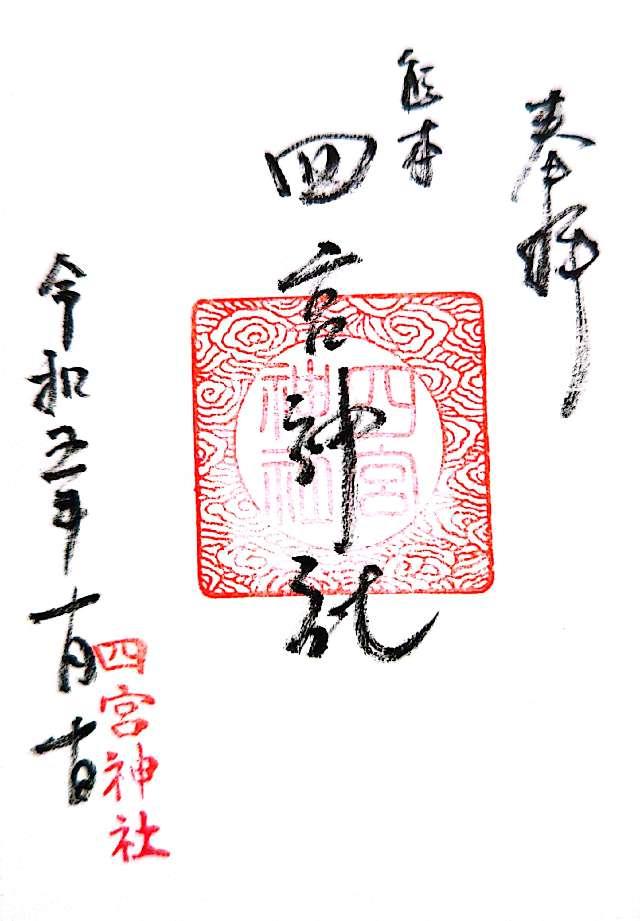 奉拝
熊本
四宮神社
四宮
神社
令和五年十月十日
四宮神社